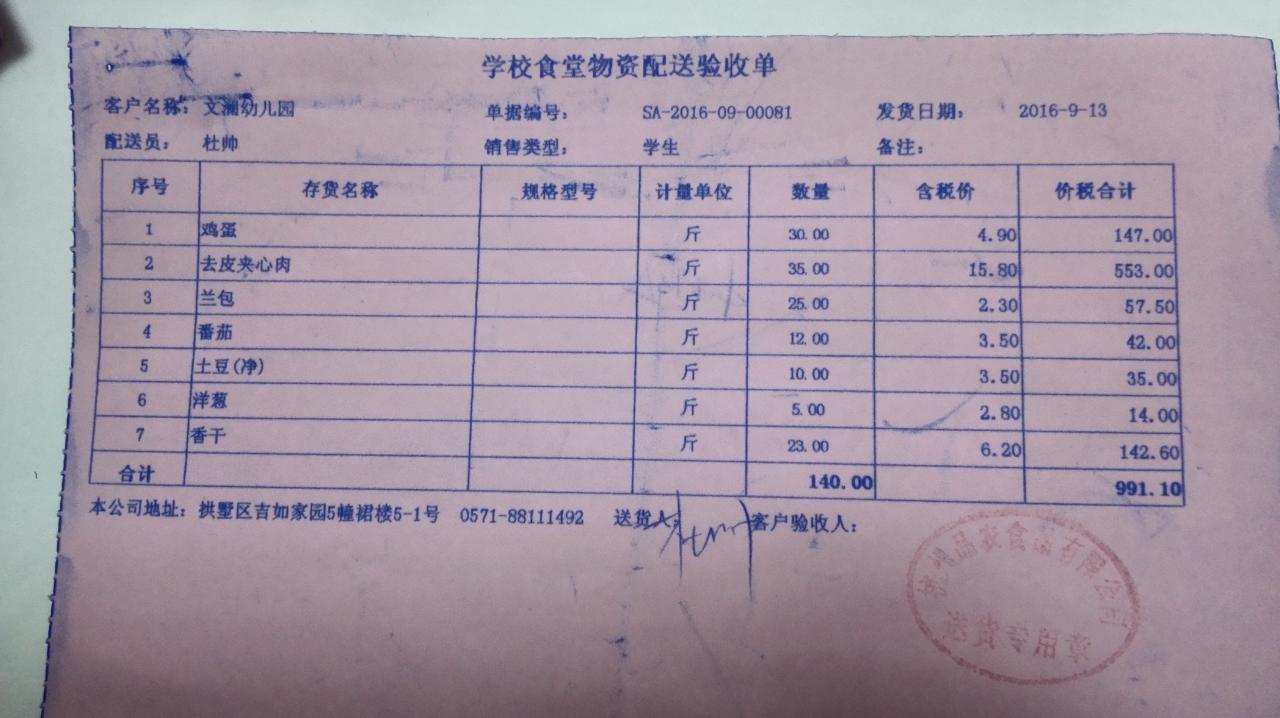 学校食堂物资配送验收单
客户名称: 文澜幼儿园 单据编号: SA-2016-09-00081 发货日期: 2016-9-13
配送员: 杜帅 销售类型: 学生 备注:
序号 存货名称 规格型号 计量单位 数量 含税价 价税合计
1 鸡蛋 斤 30.00 4.90 147.00
2 去皮夹心肉 斤 35.00 15.80 553.00
3 兰包 斤 25.00 2.30 57.50
4 番茄 斤 12.00 3.50 42.00
5 土豆(净) 斤 10.00 3.50 35.00
6 洋葱 斤 5.00 2.80 14.00
7 香干 斤 23.00 6.20 142.60
合计 140.00 991.10
本公司地址: 拱墅区吉如家园5幢裙楼5-1号 0571-88111492 送货人: 客户验收人:
杭州品农食品有限公司
送货专用章